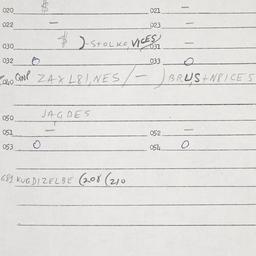 020 $ 021 –
022 – 023 –
030 $ )-STOLKE, VICES) 031 –
032 0 033 0
040 ZAXL81,NES/–) BRUS+N8ICES
050 JAGDES
051 – 052 –
053 0 054 0
KUGDIZELBE (208 (210